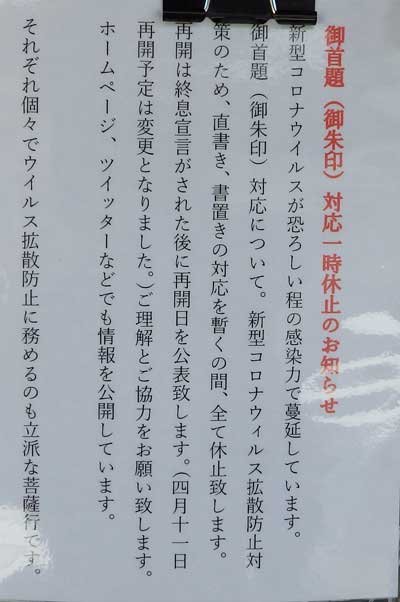 御首題（御朱印）対応一時休止のお知らせ
新型コロナウイルスが恐ろしい程の感染力で蔓延しています。
御首題（御朱印）対応について。新型コロナウィルス拡散防止対
策のため、直書き、書置きの対応を暫くの間、全て休止致します。
再開は終息宣言がされた後に再開日を公表致します。（四月十一日
再開予定は変更となりました。）ご理解とご協力をお願い致します。
ホームページ、ツイッターなどでも情報を公開しています。
それぞれ個々でウイルス拡散防止に務めるのも立派な菩薩行です。